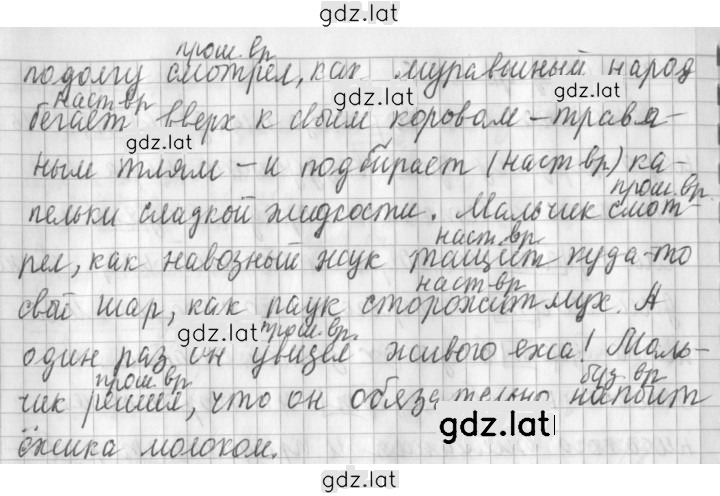 gdz.lat
прош. вр
подолгу смотрел, как муравьиный народ
gdz.lat
gdz.lat
наст вр
бегает вверх к своим коровам – травя-
gdz.lat
ным тлям – и подбирает (наст вр) ка-
прош. вр.
пельки сладкой жидкости. Мальчик смот-
наст. вр
рел, как навозный жук тащит куда-то
наст. вр
свой шар, как паук сторожит мух. А
gdz.lat
прош. вр.
один раз он увидел живого ежа! Маль-
прош. вр
буд вр
чик решил, что он обязательно напоит
gdz.lat
ёжика молоком.
gdz.lat